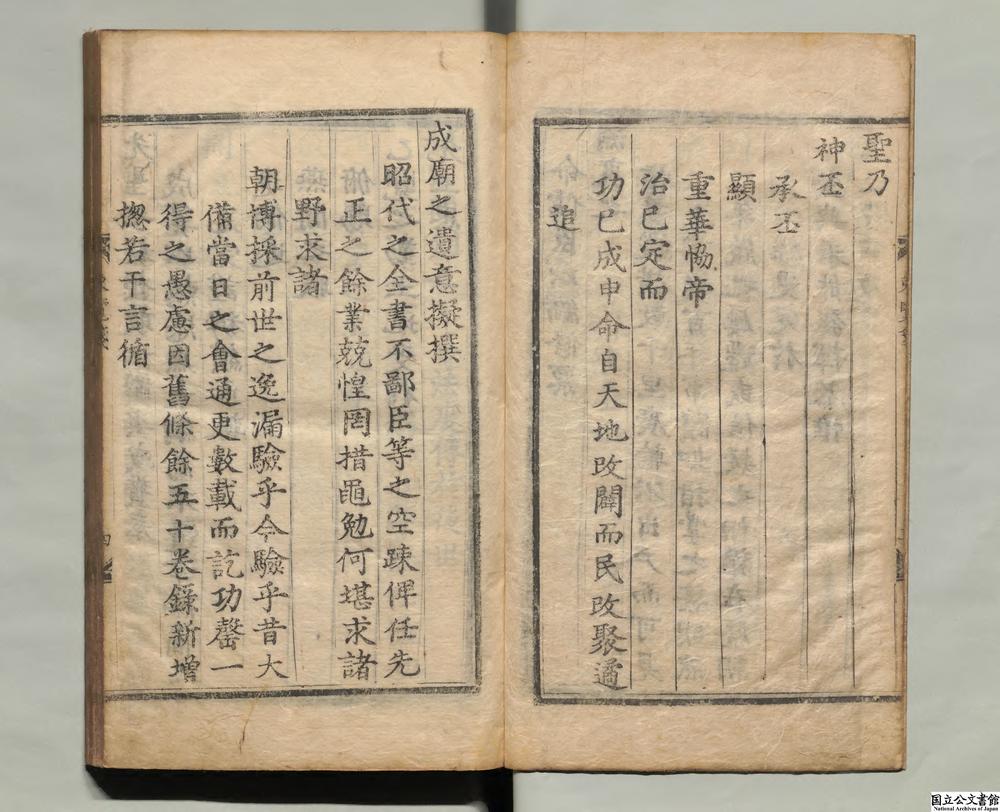 聖乃
神丕
承丕
顯
重華恊帝
治已定而
功已成申命自天地改闢而民改聚遹
追
成廟之遺意擬撰
昭代之全書不鄙臣等之空踈俾任先
正之餘業兢惶罔措黽勉何堪求諸
野求諸
朝博採前世之逸漏驗乎今驗乎昔大
備當日之會通更數載而訖功罄一
得之愚慮因舊條餘五十卷錄新增
揔若干言循
国立公文書館
National Archives of Japan